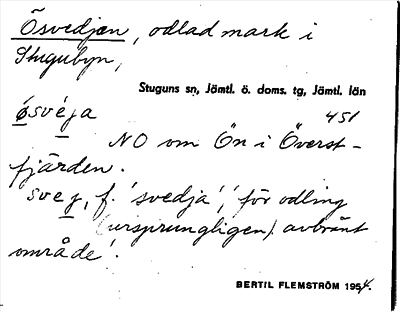 Ösvedjen, odlad mark i
Stugubyn,
Stuguns sn, Jämtl. ö. doms. tg, Jämtl. län
ǿsvéja 451
NO om Ön i Överst-
fjärden.
svej, f. 'svedja', 'för odling
(ursprungligen) avbränt
område'.
BERTIL FLEMSTRÖM 1954.